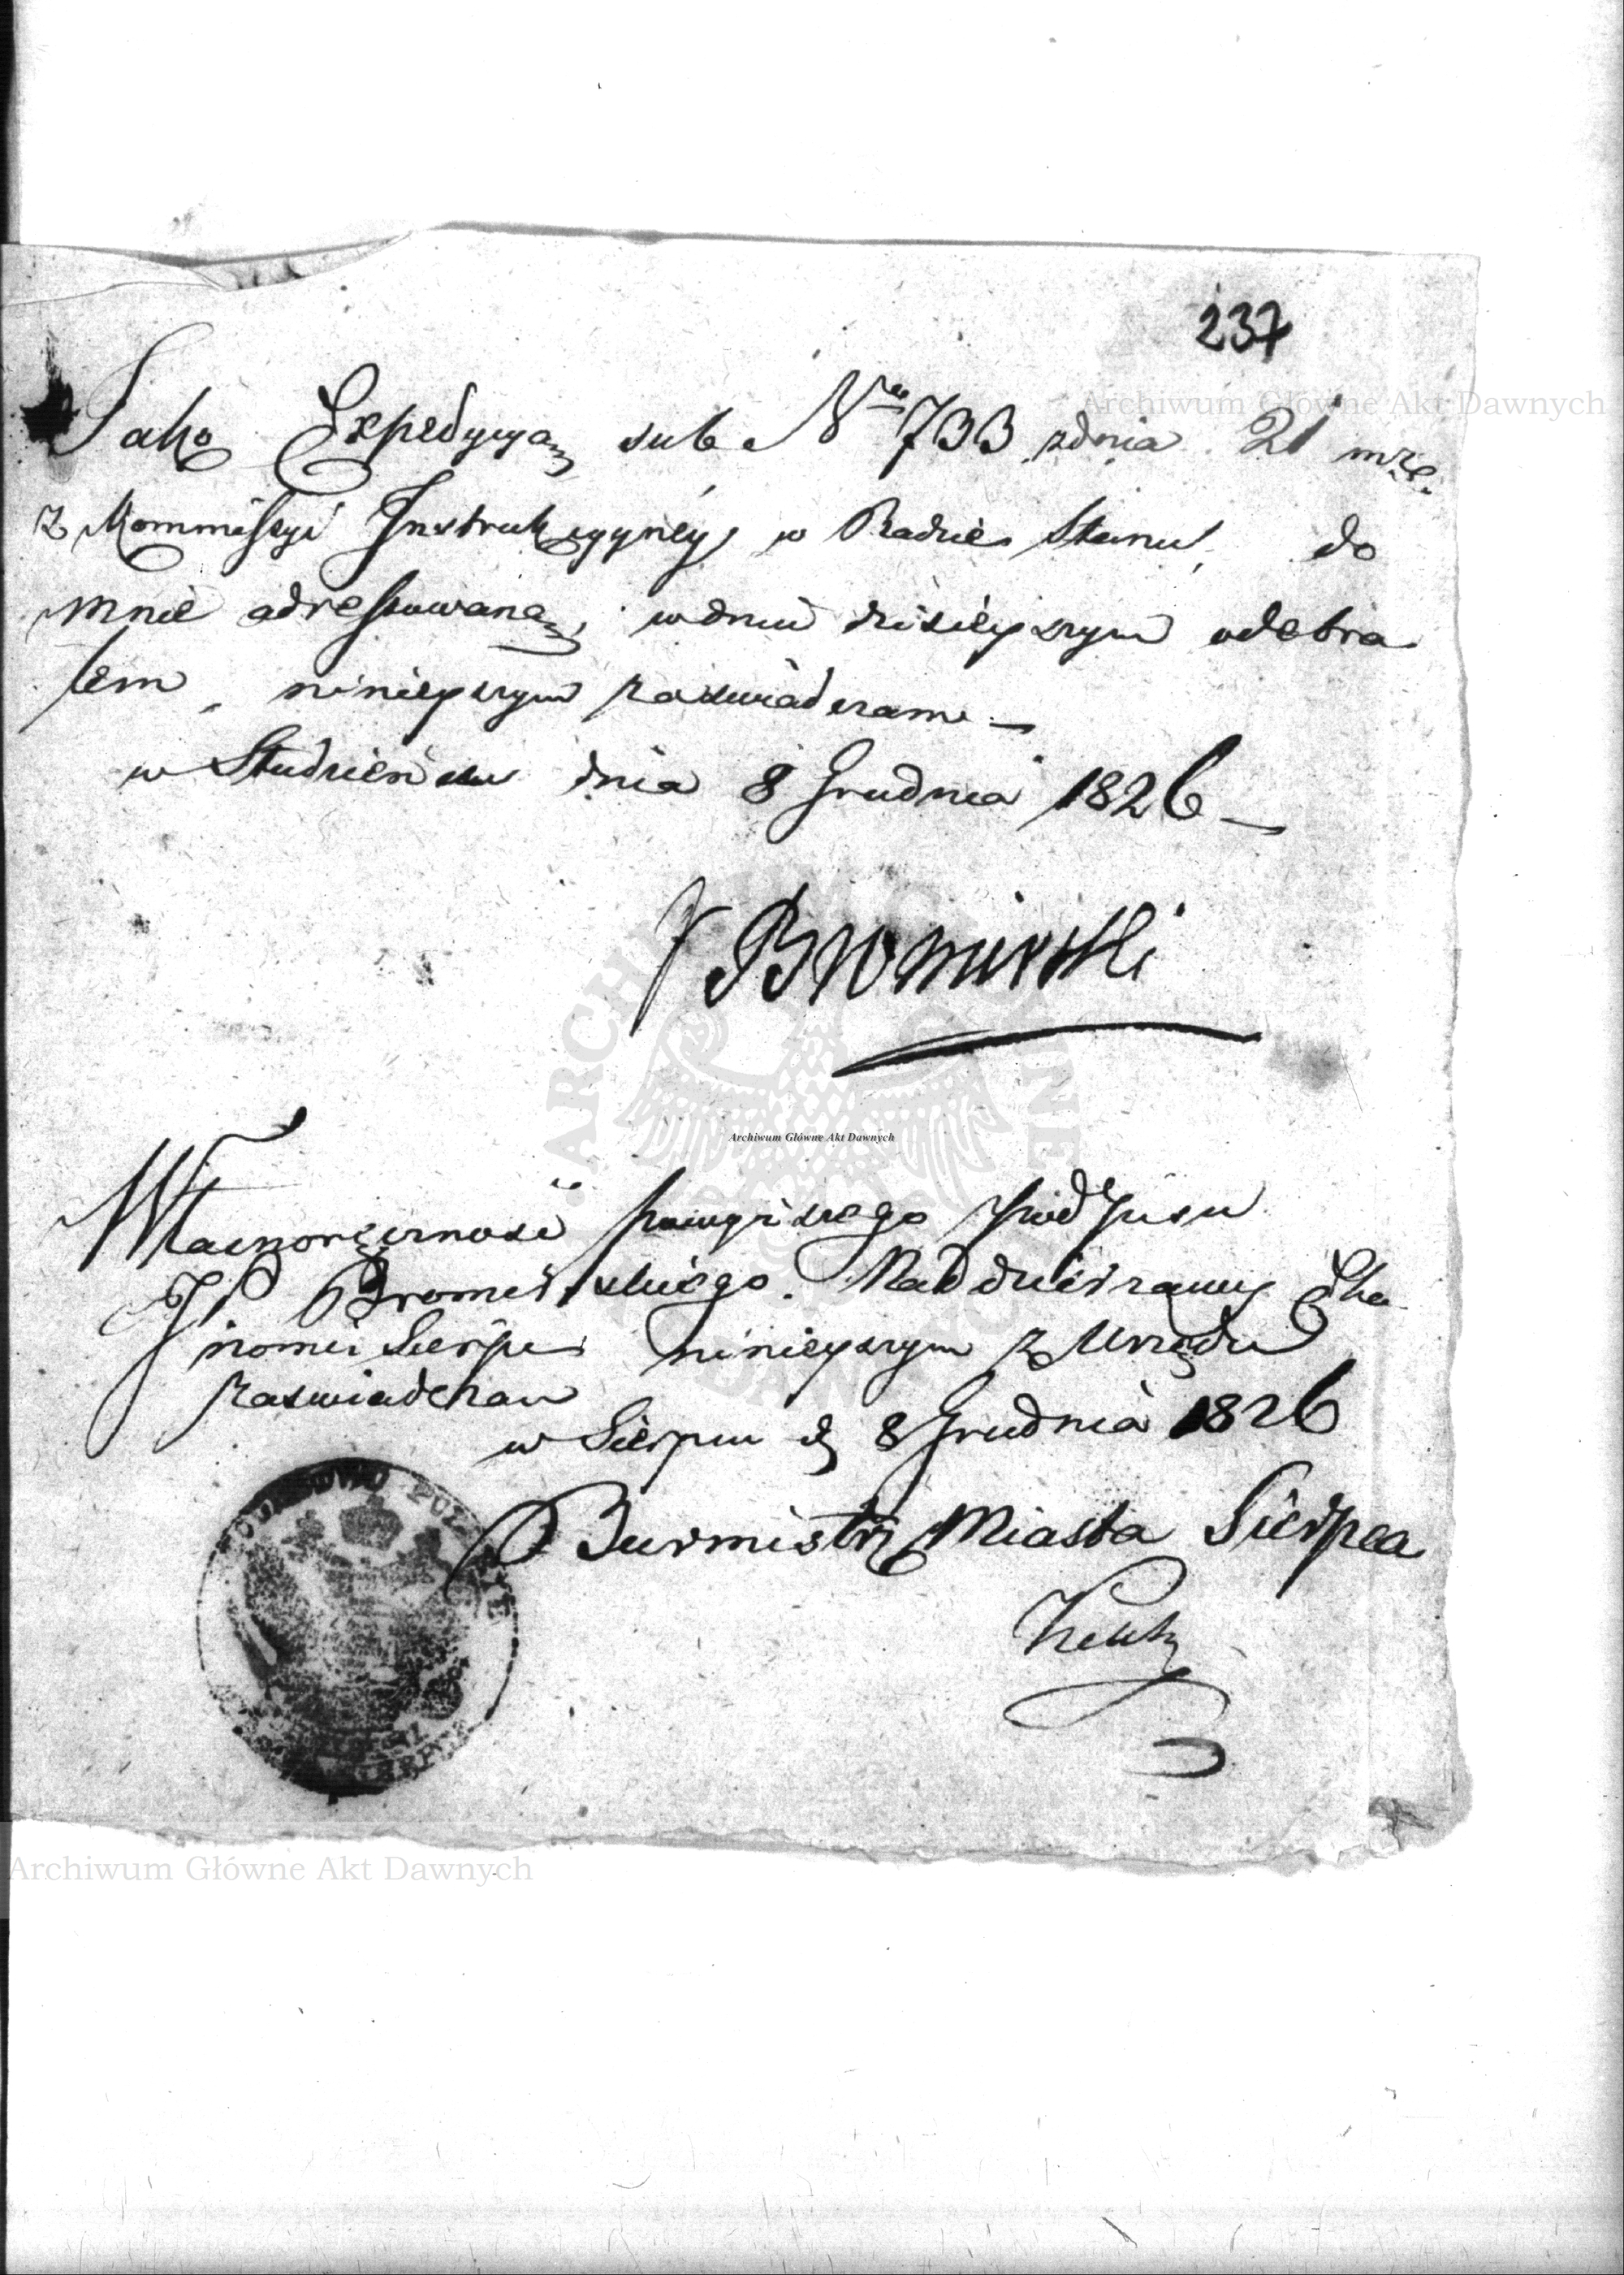 237
Jako Expedycyą sub Nro 733 zdnia 21 mze.
z Kommissyi Instrukcyyney w Radzie Stanu, do
mnie adressowaną, wdniu dzisieyszym odebra
łem, ninieyszym zaswiadczam —
w Studzieńcu dnia 8 Grudnia 1826 —
J Bromirski
Archiwum Główne Akt Dawnych
Własnoręcznosć powyższego podpisu
JP Bromirskiego. Naddzierzawcy Eko
nomii Sierpc ninieyszym z Urzędu
zaswiadczam
w Sierpcu d 8 Grudnia 1826
Burmistrz Miasta Sierpca
Archiwum Główne Akt Dawnych
Archiwum Główne Akt Dawnych